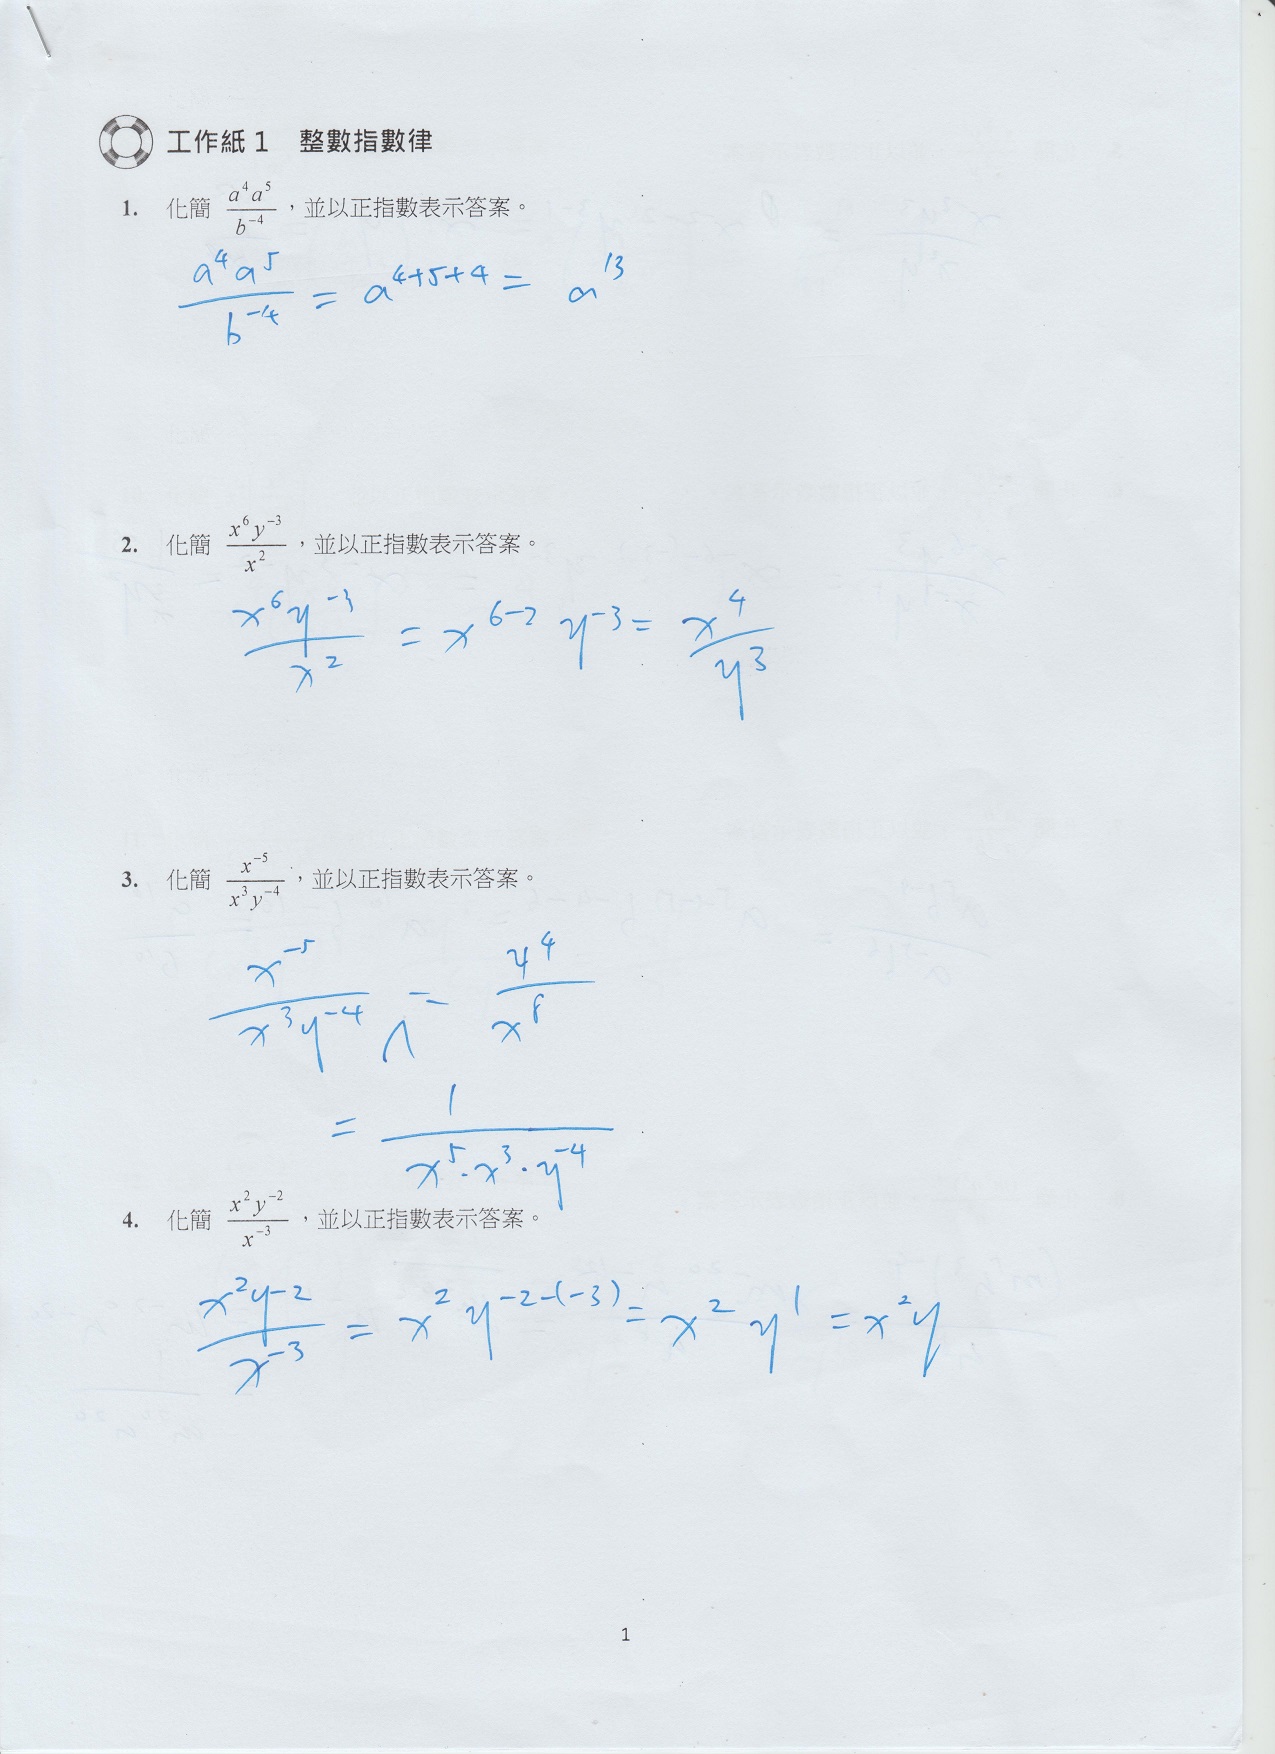 工作紙 1 整數指數律
1. 化簡 \frac{a^4 a^5}{b^{-4}},並以正指數表示答案。
\frac{a^4 a^5}{b^{-4}} = a^{4+5+4} = a^{13}
2. 化簡 \frac{x^6 y^{-3}}{x^2},並以正指數表示答案。
\frac{x^6 y^{-3}}{x^2} = x^{6-2} y^{-3} = \frac{x^4}{y^3}
3. 化簡 \frac{x^{-5}}{x^3 y^{-4}},並以正指數表示答案。
\frac{x^{-5}}{x^3 y^{-4}} ∧ = \frac{y^4}{x^8}
= \frac{1}{x^5 · x^3 · y^{-4}}
4. 化簡 \frac{x^2 y^{-2}}{x^{-3}},並以正指數表示答案。
\frac{x^2 y^{-2}}{x^{-3}} = x^2 y^{-2-(-3)} = x^2 y^1 = x^2 y
1